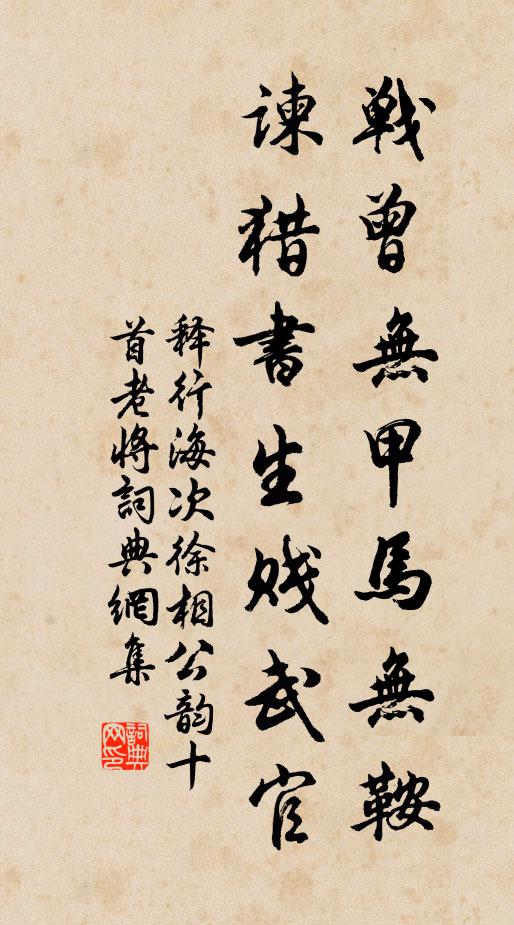 戦曾無甲馬無鞍
諫猎書生贱武官
释行海次徐相公韵十
首老将詞典網集
詞典网印